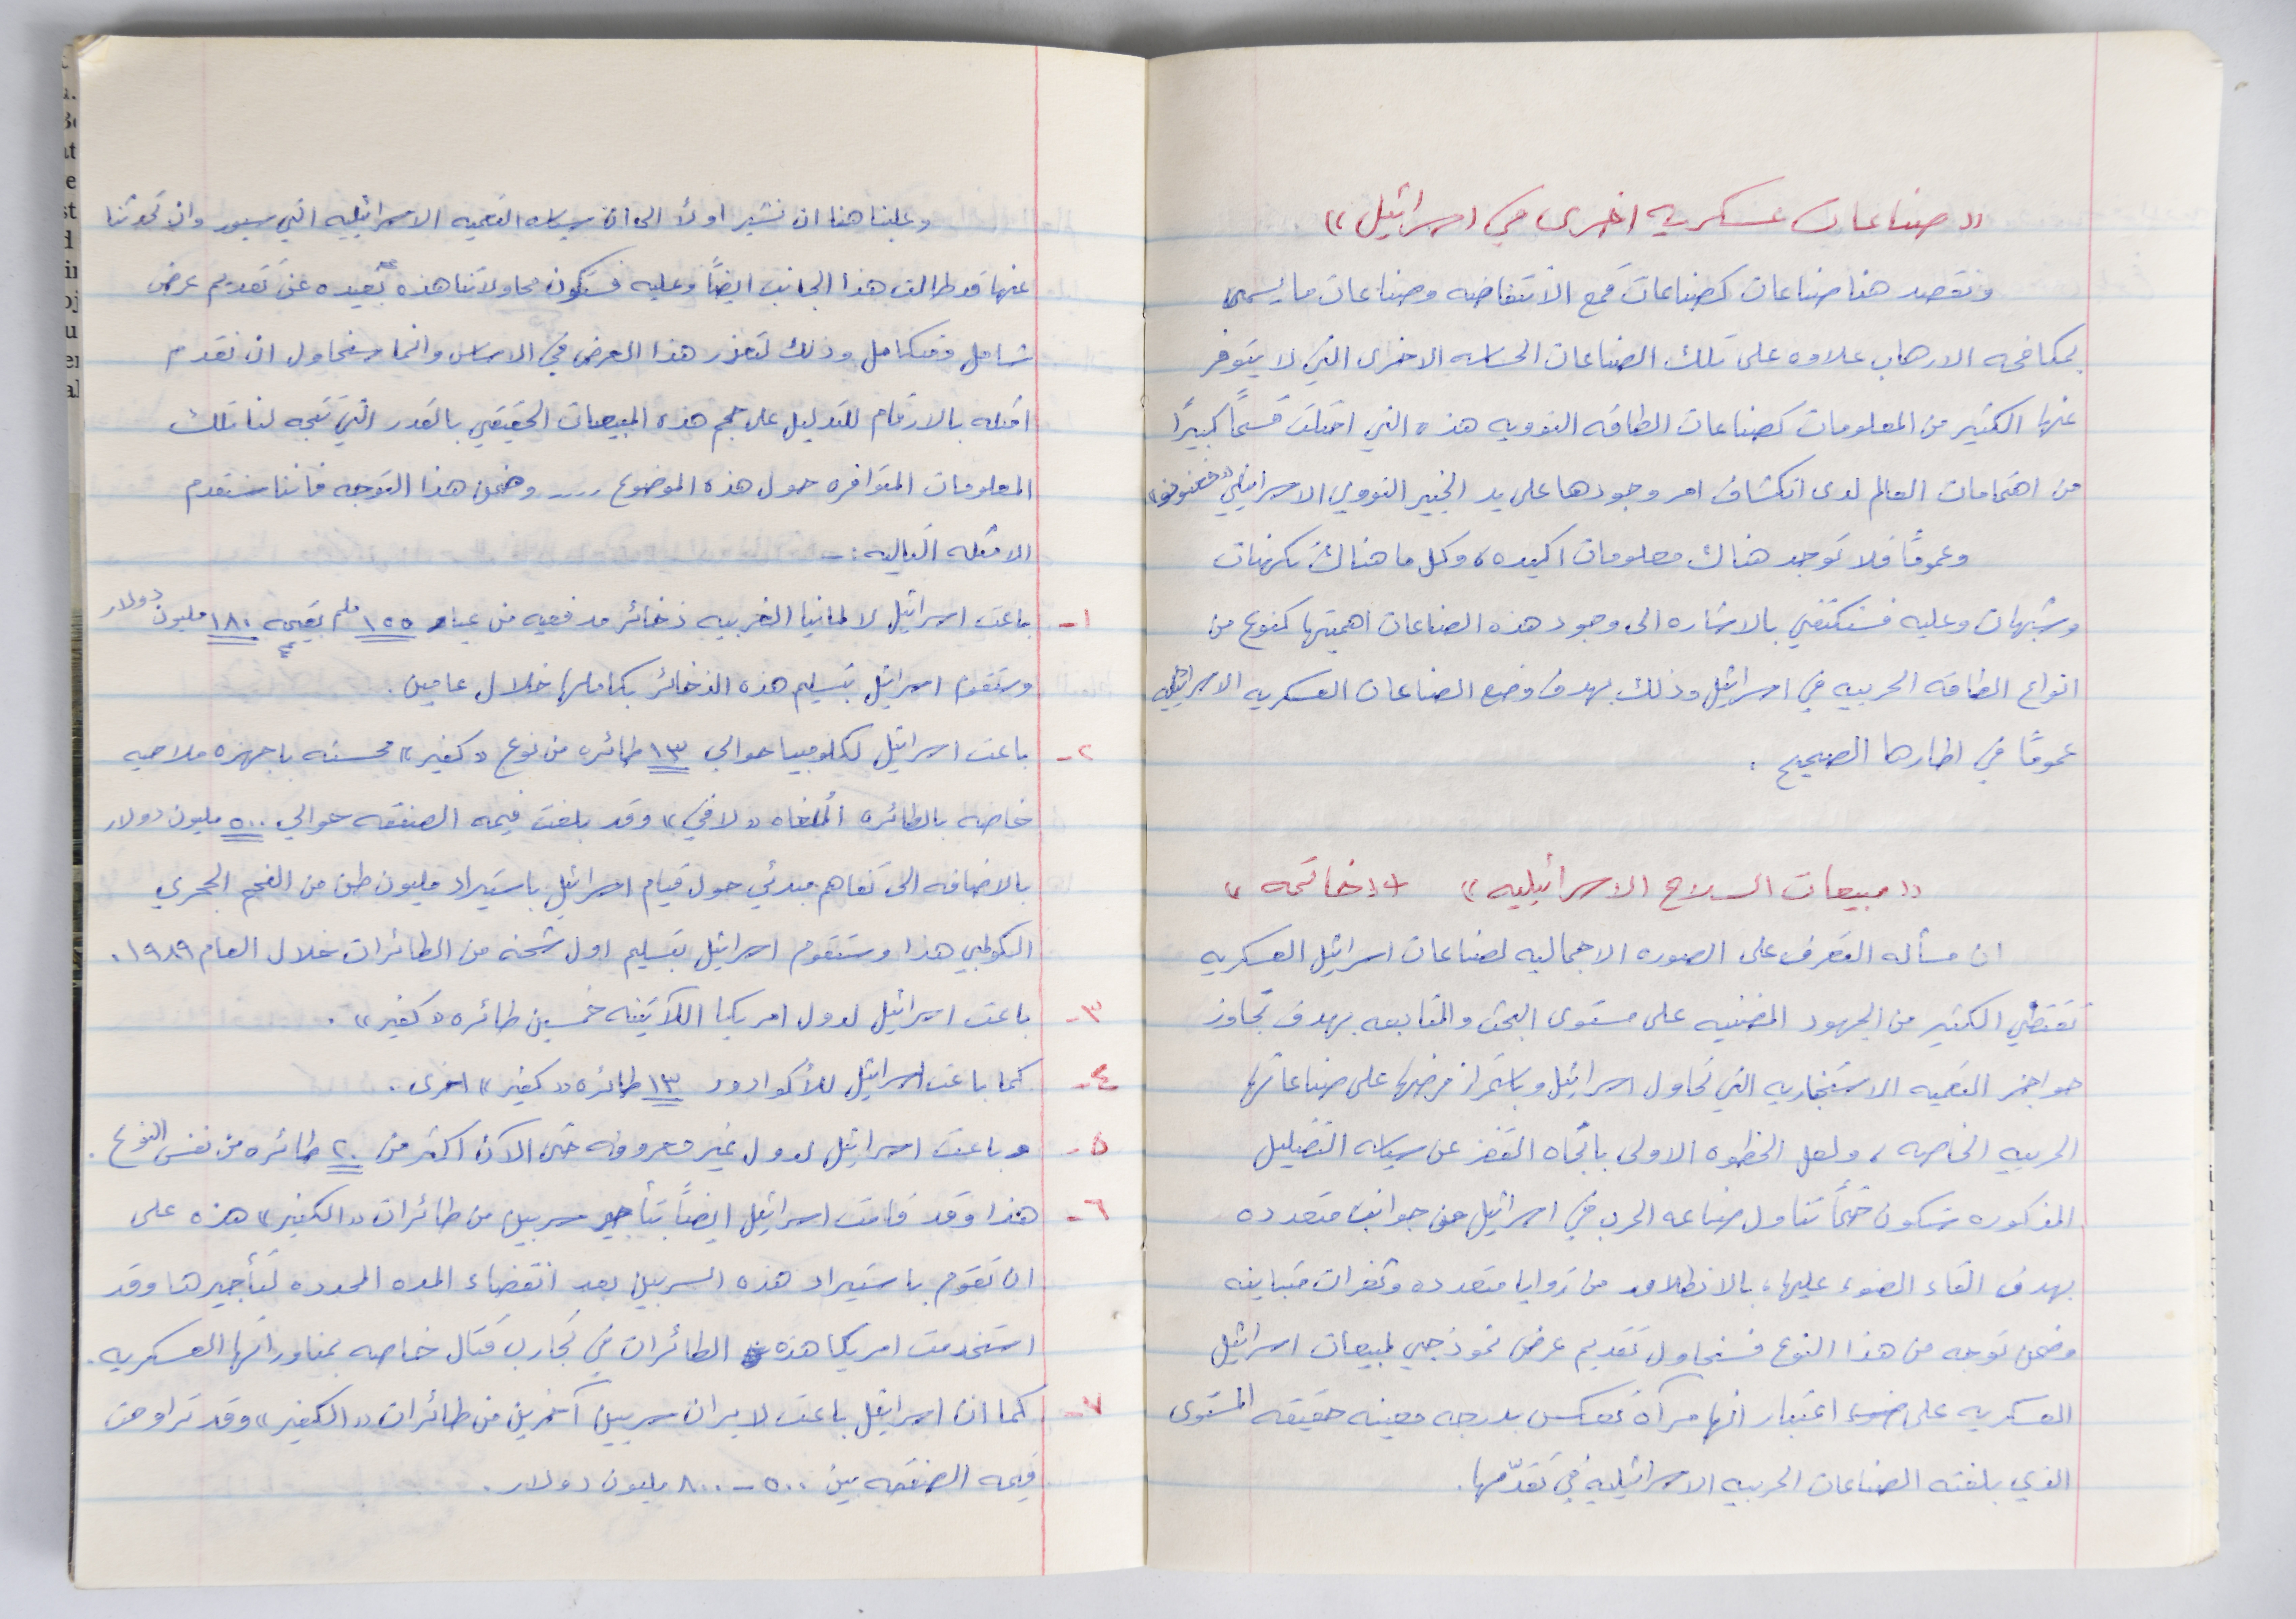 « صناعات عسكريه اخرى في اسرائيل »
ونقصد هنا صناعات كصناعات قمع الانتفاضه وصناعات ما يسمى
بمكافحه الارهاب علاوه على تلك الصناعات الحساسه الاخرى التي لا يتوفر
عنها الكثير من المعلومات كصناعات الطاقه النوويه هذه التي احتلت قسمًا كبيرًا
من اهتمامات العالم لدى انكشاف امر وجودها على يد الخبير النووي الاسرائيلي « فعنونو »
وعمومًا فلا توجد هناك معلومات اكيده، وكل ما هناك تكهنات
وشبهات وعليه فسنكتفي بالاشاره الى وجود هذه الصناعات اهميتها كنوع من
انواع الطاقه الحربيه في اسرائيل وذلك بهدف وضع الصناعات العسكريه الاسرائيليه
عمومًا في اطارها الصحيح .
« مبيعات السلاح الاسرائيليه » + « خاتمه »
ان مسأله التعرف على الصوره الاجماليه لصناعات اسرائيل العسكريه
تقتضي الكثير من الجهود المضنيه على مستوى البحث والمتابعه بهدف تجاوز
حواجز التعميه الاستخباريه التي تحاول اسرائيل وباستمرار فرضها على صناعاتها
الحربيه الخاصه ، ولعل الخطوه الاولى باتجاه القفز عن سياسه التضليل
المذكوره ستكون حتمًا تناول صناعه الحرب في اسرائيل من جوانب متعدده
بهدف القاء الضوء عليها، بالانطلاق من زوايا متعدده وثغرات متباينه
وضمن توجه من هذا النوع فسنحاول تقديم عرض نموذجي لمبيعات اسرائيل
العسكريه على ضوء اعتبار انها مرآة تعكس بدرجه معينه حقيقه المستوى
الذي بلغته الصناعات الحربيه الاسرائيليه في تقدّمها.
وعلينا هنا ان نشير اولًا الى ان سياسه التعميه الاسرائيليه التي سبق وان تحدثنا
عنها قد طالت هذا الجانب ايضًا وعليه فستكون محاولاتنا هذه بعيده عن تقديم عرض
شامل ومتكامل وذلك لتعذر هذا العرض في الاساس وانما سنحاول ان نقدم
امثله بالارقام للتدليل على حجم هذه المبيعات الحقيقي بالقدر الذي تتيحه لنا تلك
المعلومات المتوافره حول هذه الموضوع .... وضمن هذا التوجه فاننا سنقدم
الامثله التاليه :-
١- باعت اسرائيل لالمانيا الغربيه ذخائر مدفعيه من عيار ١٥٥ ملم بقيمه ١٨٠ مليون دولار
وستقوم اسرائيل بتسليم هذه الذخائر بكاملها خلال عامين .
٢- باعت اسرائيل لكلومبيا حوالي ١٣ طائره من نوع « كفير » محسنه باجهزه ملاحيه
خاصه بالطائره الملغاه « لافي » وقد بلغت قيمه الصفقه حوالي ٥٠٠ مليون دولار
بالاضافه الى تفاهم مبدئي حول قيام اسرائيل باستيراد مليون طن من الفحم الحجري
الكولمبي هذا وستقوم اسرائيل بتسليم اول شحنه من الطائرات خلال العام ١٩٨٩ .
٣- باعت اسرائيل لدول امريكا اللاتينيه خمسين طائره « كفير » .
٤- كما باعت اسرائيل للأكوادور ١٣ طائره « كفير » اخرى .
٥- وباعت اسرائيل لدول غير معروفه حتى الآن اكثر من ٢٠ طائره من نفس النوع .
٦- هذا وقد قامت اسرائيل ايضًا بتأجير سربين من طائرات « الكفير » هذه على
ان تقوم باستيراد هذه السربين بعد انقضاء المده المحدده لتأجيرها وقد
استخدمت امريكا هذه الطائرات في تجارب قتال خاصه بمناوراتها العسكريه .
٧- كما ان اسرائيل باعت لايران سربين آخرين من طائرات « الكفير » وقد تراوحت
قيمه الصفقه بين ٥٠٠ - ٨٠٠ مليون دولار .